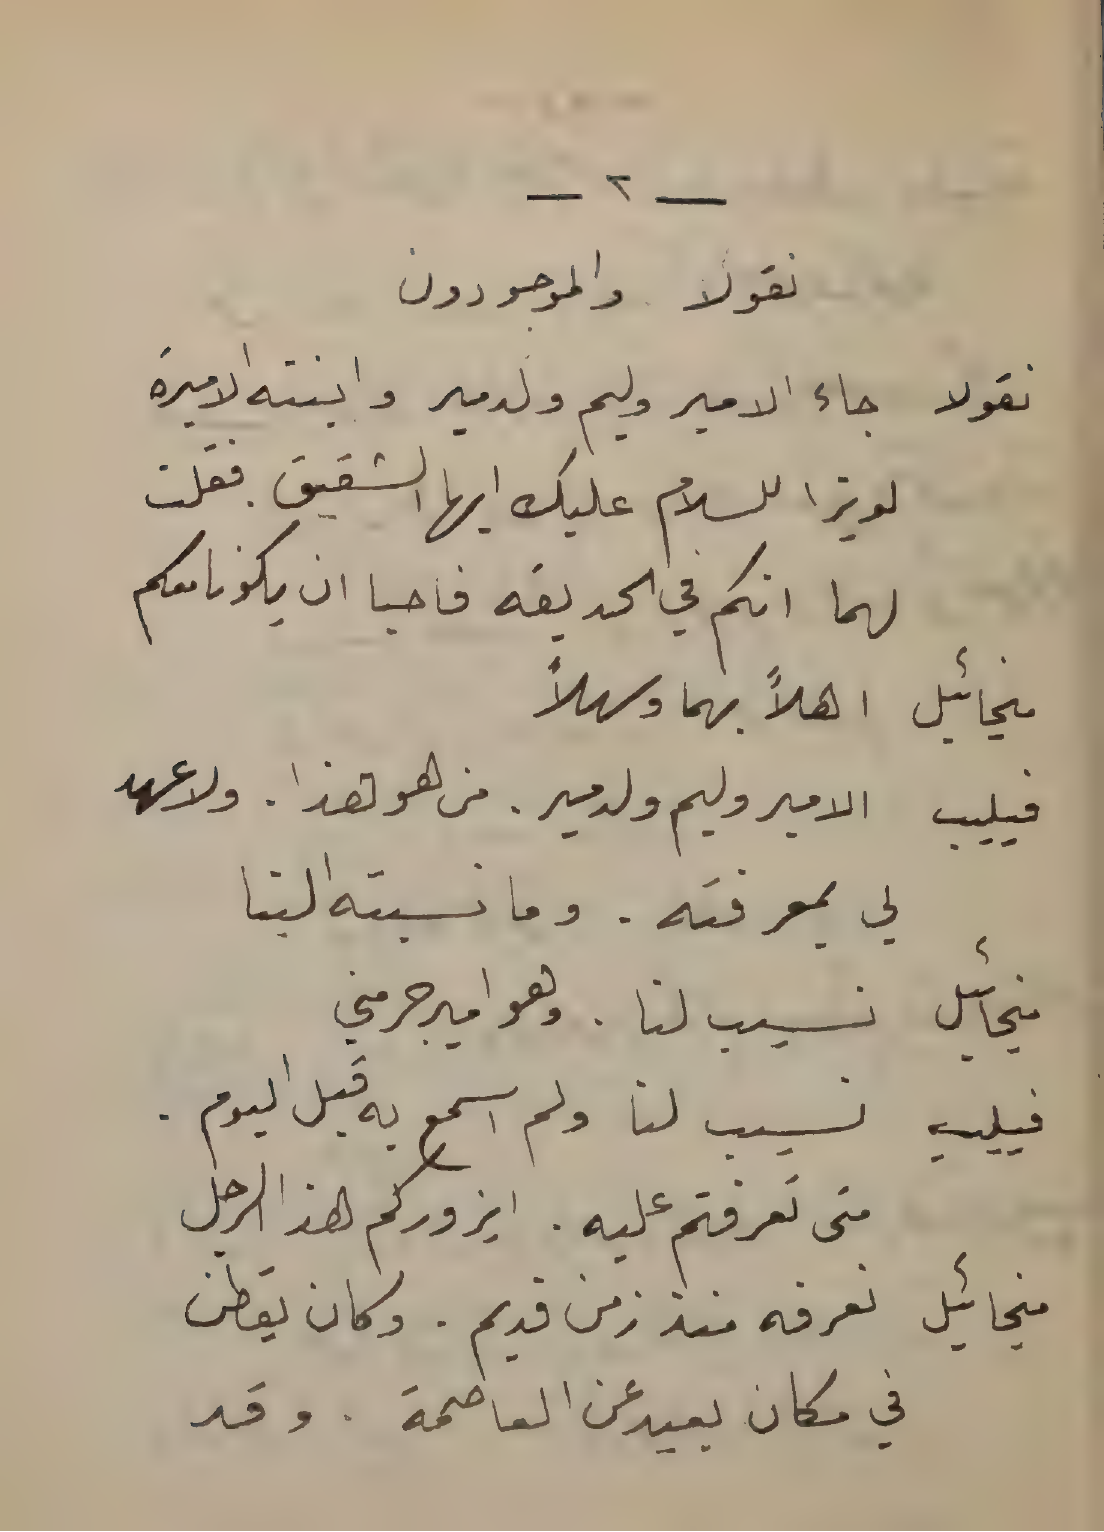 — ٢ —
نقولا والموجودون
نقولا جاء الامير وليم ولدمير وابنته الاميرة
لويزا للسلام عليك ايها الشقيق . فقلت
لهما انكم في الحديقه فاحبا ان يكونا معكم
ميخائيل اهلاً بهما وسهلاً
فيليب الامير وليم ولدمير . من هو هذا . ولا عهد
لي بمعرفته . وما نسبته الينا
ميخائيل نسيب لنا . وهو امير جرمني
فيليب نسيب لنا ولم اسمع به قبل اليوم .
متى تعرفتم عليه . ايزوركم هذا الرجل
ميخائيل نعرفه منذ زمن قديم . وكان يقطن
في مكان بعيد عن العاصمة . وقد